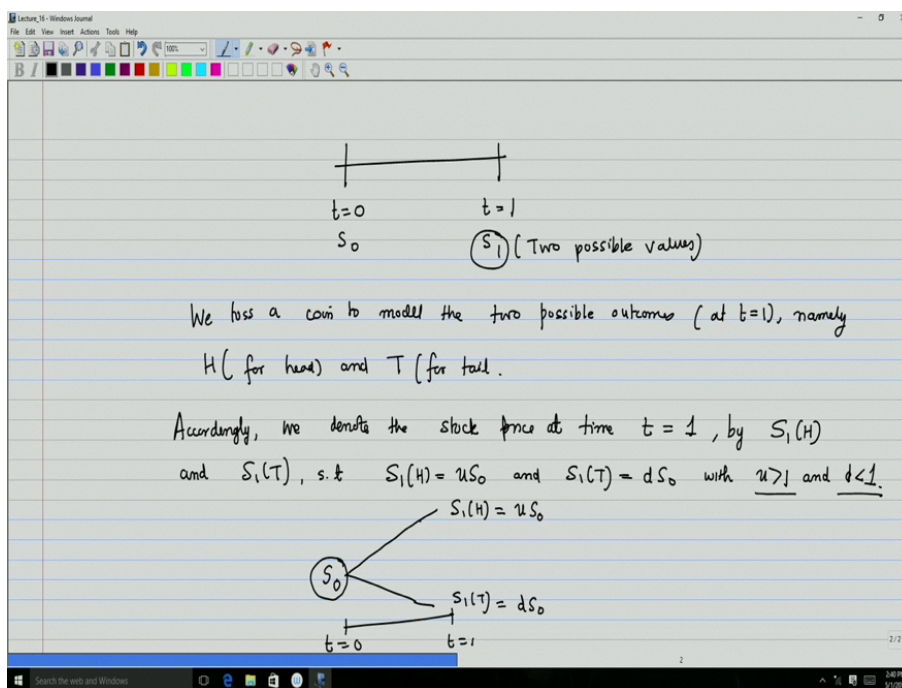 Lecture_16 - Windows Journal
File Edit View Insert Actions Tools Help
100%
B I
t=0 t=1
S₀ S₁ (Two possible values)
We toss a coin to model the two possible outcomes (at t=1), namely
H( for head) and T (for tail.
Accordingly, we denote the stock price at time t = 1, by S₁(H)
and S₁(T), s.t S₁(H) = uS₀ and S₁(T) = dS₀ with u>1 and d<1.
S₁(H) = uS₀
S₀
S₁(T) = dS₀
t=0 t=1
2/2
2
Search the web and Windows
2:40 PM